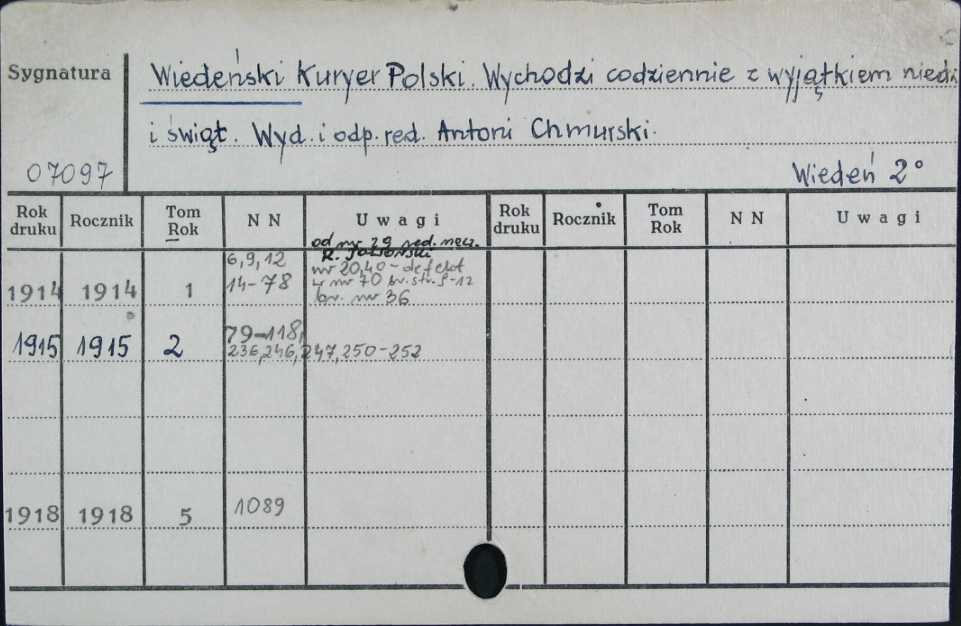 Sygnatura
Wiedeński Kuryer Polski. Wychodzi codziennie z wyjątkiem niedz
i świąt. Wyd. i odp. red. Antoni Chmurski.
07097
Wiedeń 2°
Rok druku Rocznik Tom Rok N N Uwagi Rok druku Rocznik Tom Rok N N Uwagi
od nr 29 red. nacz.
6, 9, 12
1914 1914 1 14-78
nr 20, 40 - defekt
w nr 70 br. str. 9-12
br. nr 36
1915 1915 2 79-118,
236, 246, 247, 250-252
1918 1918 5 1089